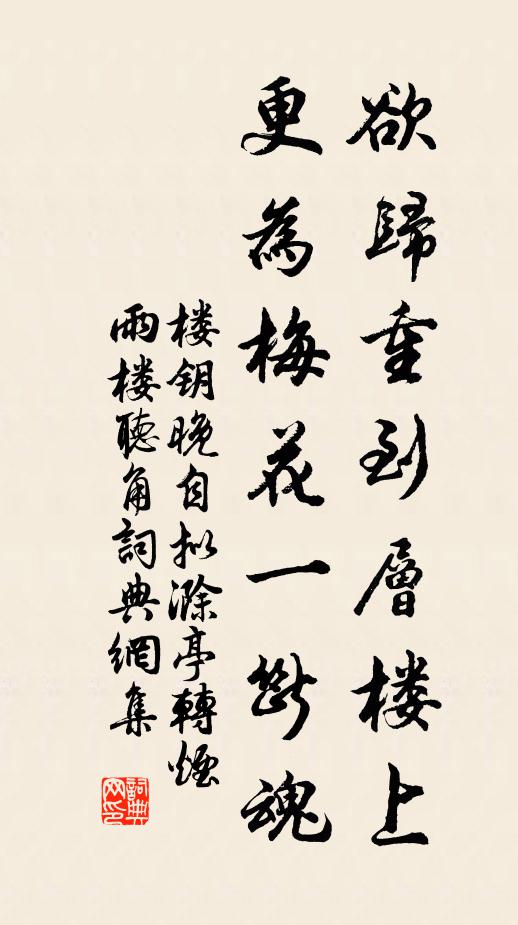 欲歸重到層楼上
更為梅花一斷魂
楼钥晚自拟滁亭轉煙
雨楼聽角詞典網集
詞典
网印